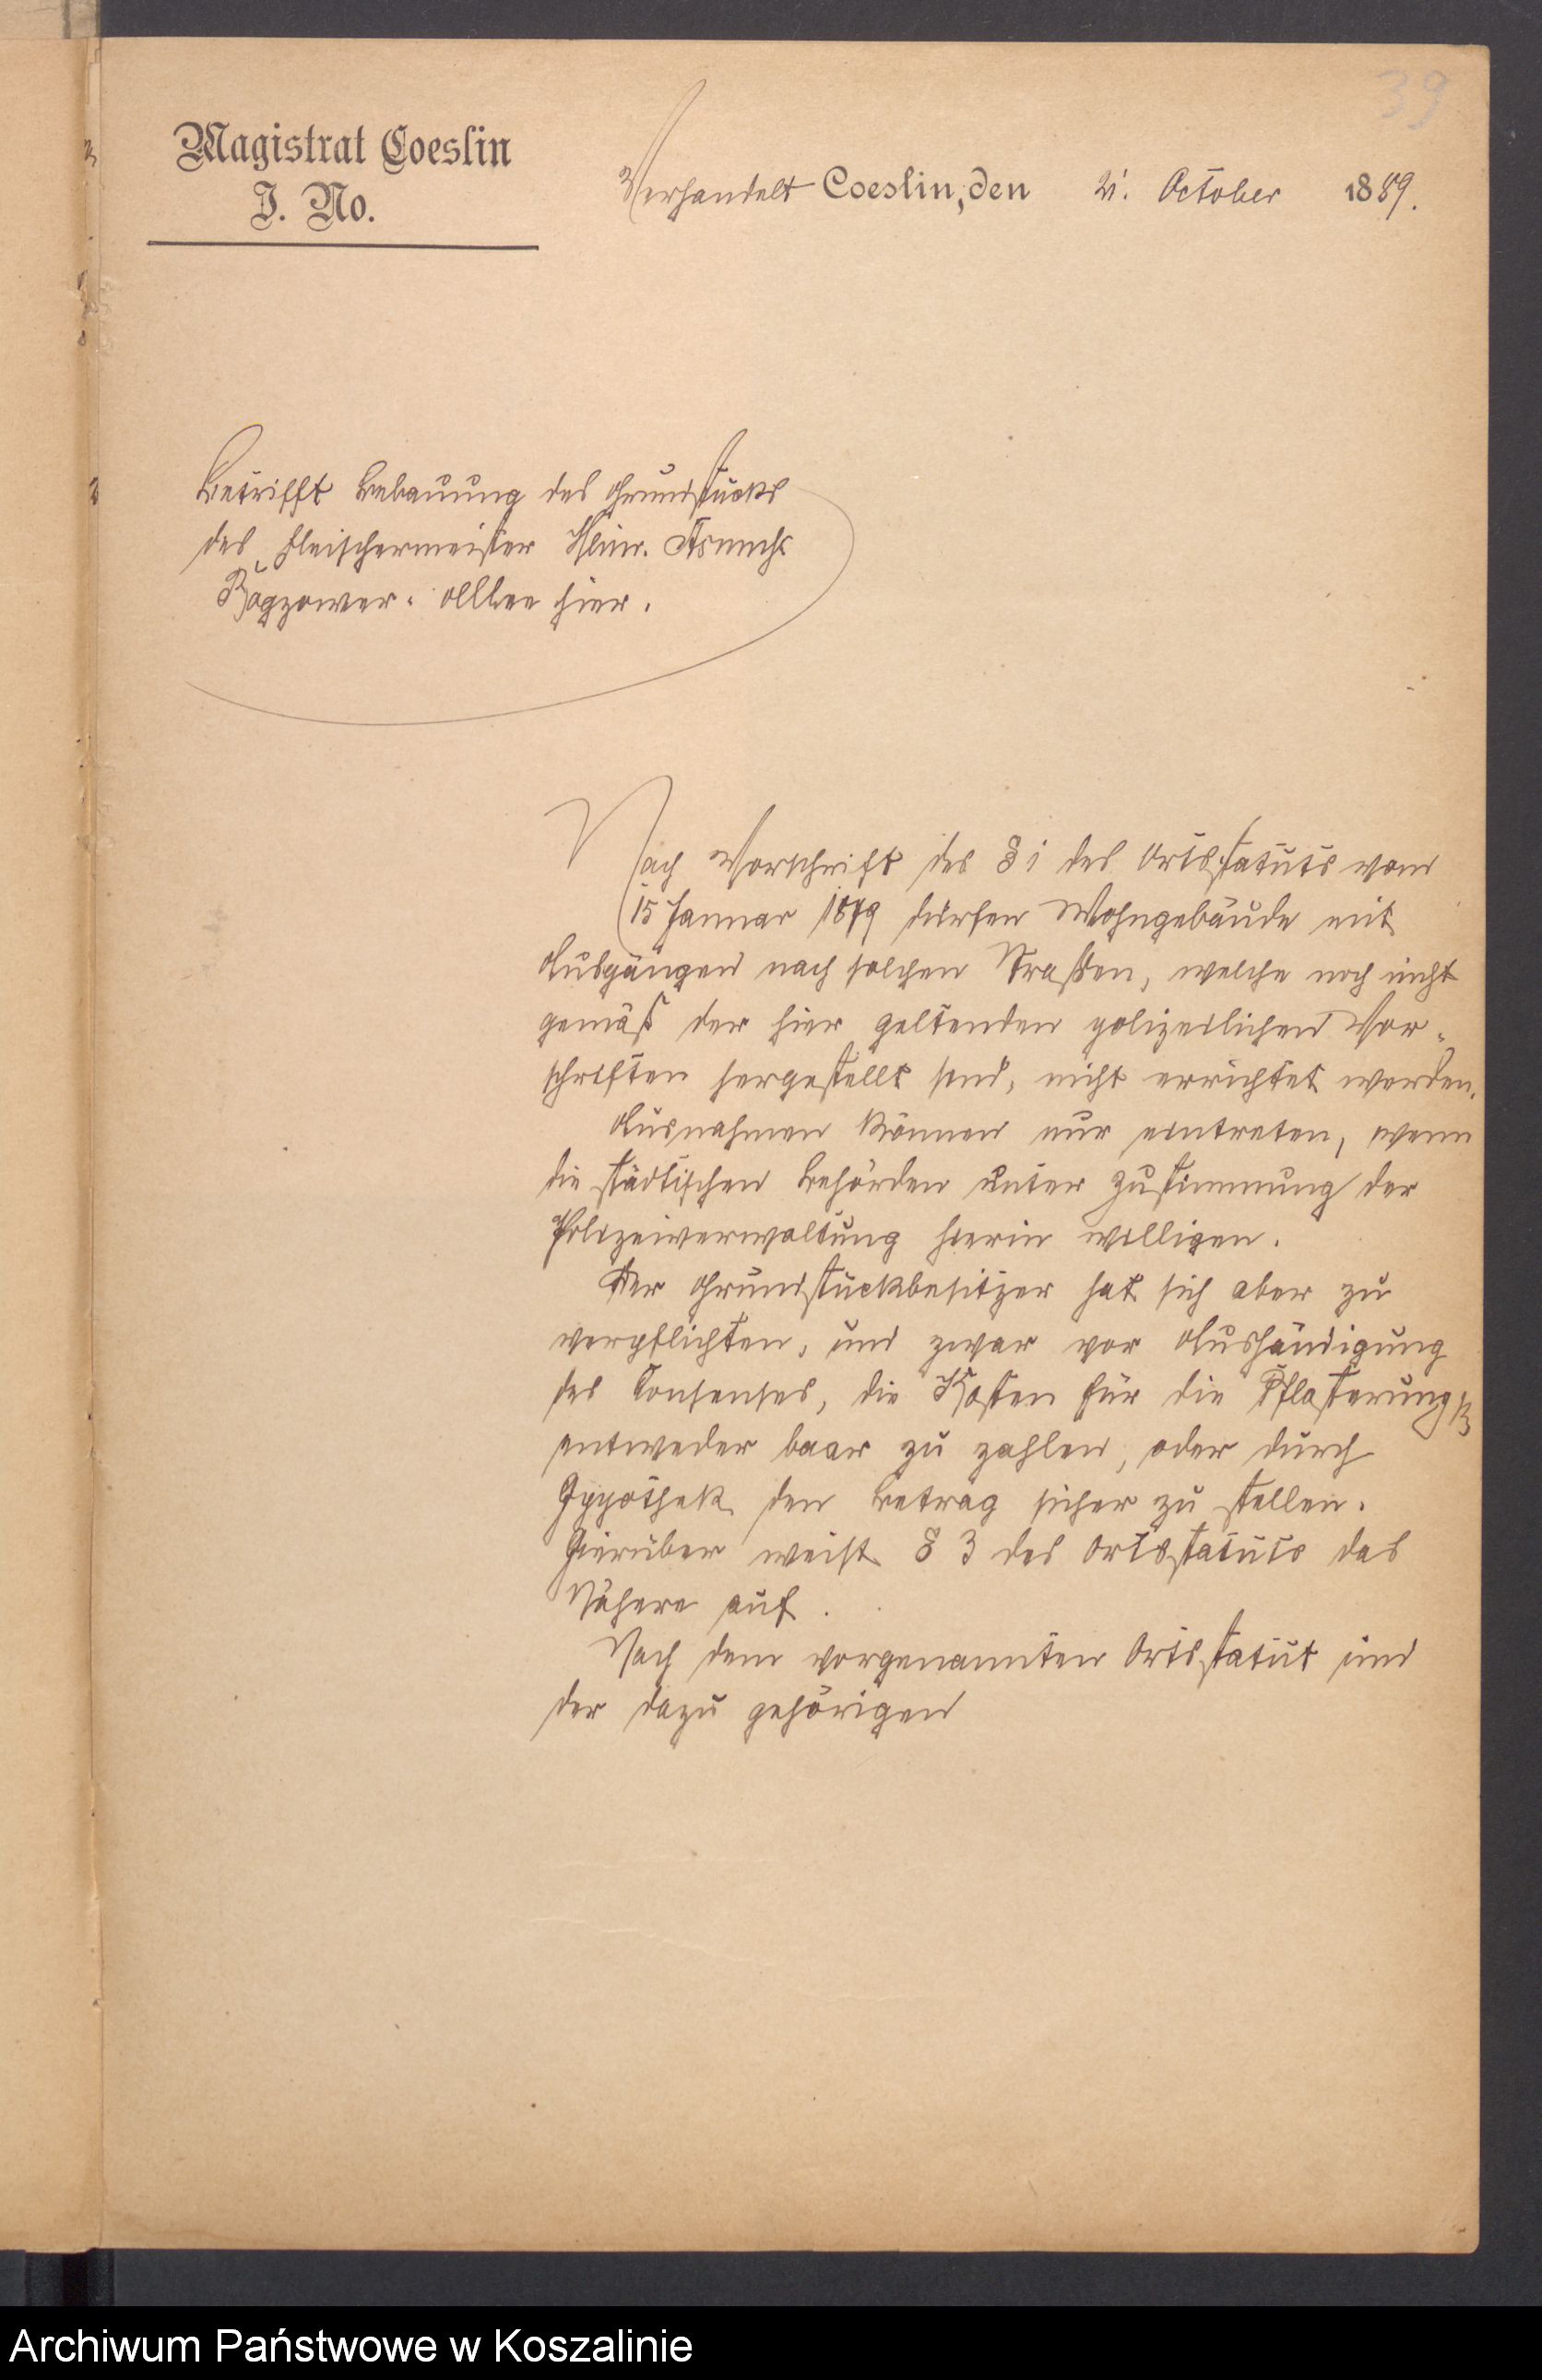 39
Magistrat Coeslin
J. No.
Verhandelt Coeslin, den 21. October 1889.
Betrifft Bebauung des Grundstücks
des Fleischermeister Heinr.
Rogzower-Allee hier.
Nach Vorschrift des § 1 des Ortsstatuts vom
15 Januar 1879 dürfen Wohngebäude mit
Ausgängen nach solchen Straßen, welche noch nicht
gemäß der hier geltenden polizeilichen Vor-
schriften hergestellt sind, nicht errichtet werden.
Ausnahmen können nur eintreten, wenn
die städtischen Behörden unter Zustimmung der
Polizeiverwaltung hierin willigen.
Der Grundstückbesitzer hat sich aber zu
verpflichten, und zwar vor Aushändigung
des Consenses, die Kosten für die Pflasterung
entweder baar zu zahlen, oder durch
Hypothek den Betrag sicher zu stellen.
Hierüber weist § 3 des Ortsstatuts das
Nähere auf.
Nach dem vorgenannten Ortsstatut und
der dazu gehörigen
Archiwum Państwowe w Koszalinie